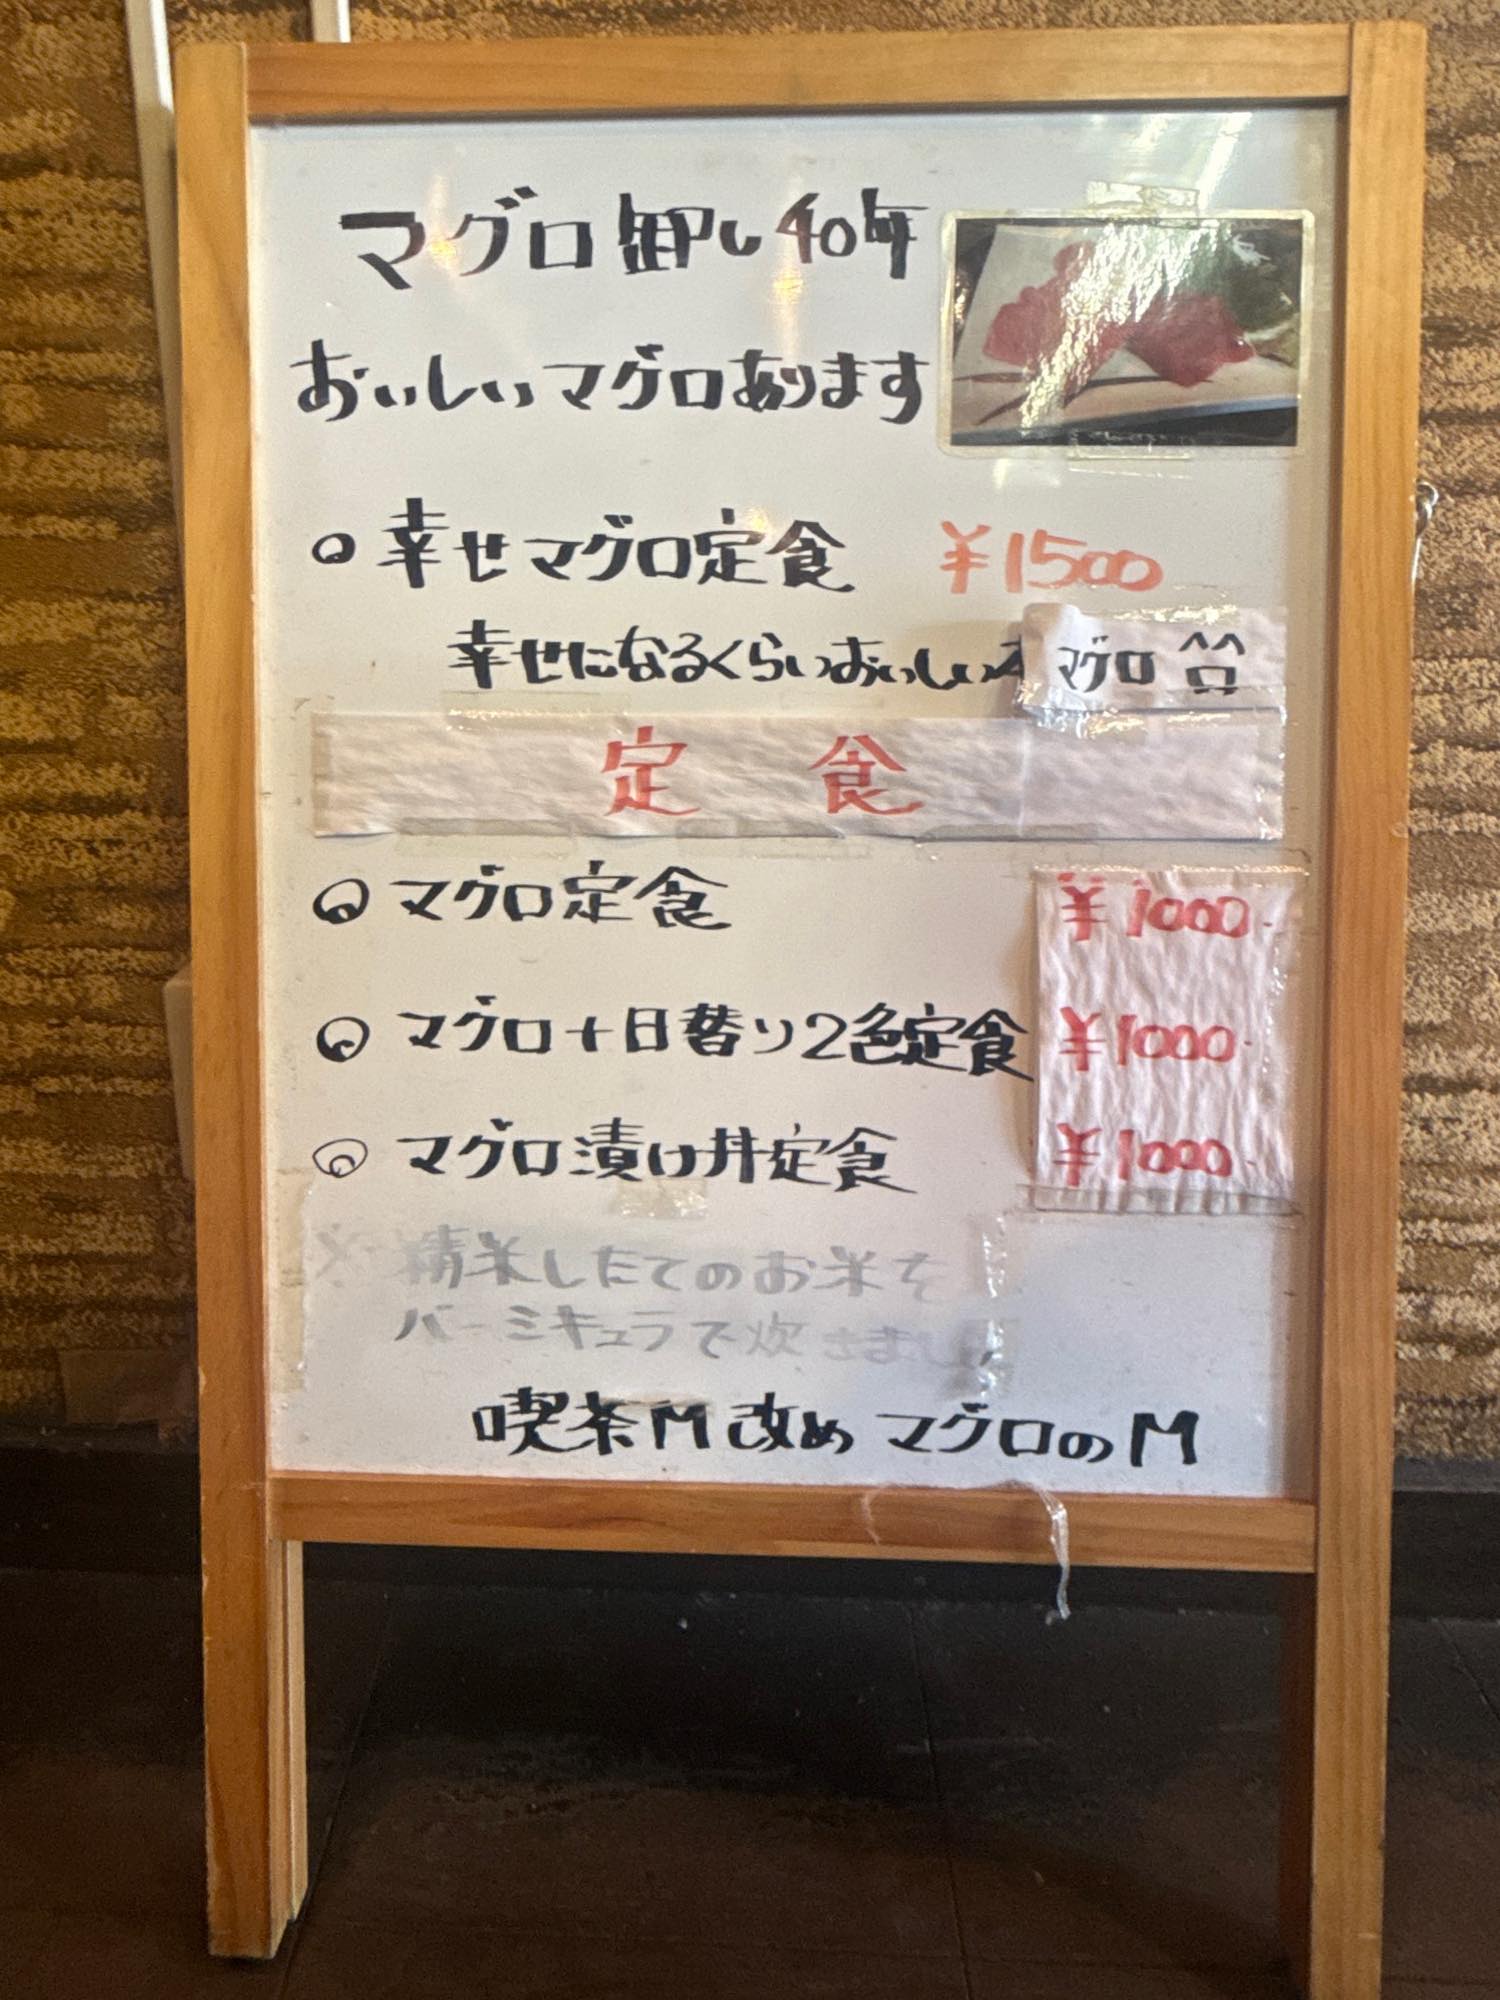 マグロ卸し40年
おいしいマグロあります
○ 幸せマグロ定食 ¥1500
幸せになるくらいおいしい マグロ
定食
◎ マグロ定食 ¥1000
◎ マグロ+日替り2色定食 ¥1000
◎ マグロ漬け丼定食 ¥1000
※ 精米したてのお米を
バーミキュラで炊きました
喫茶M改め マグロのM